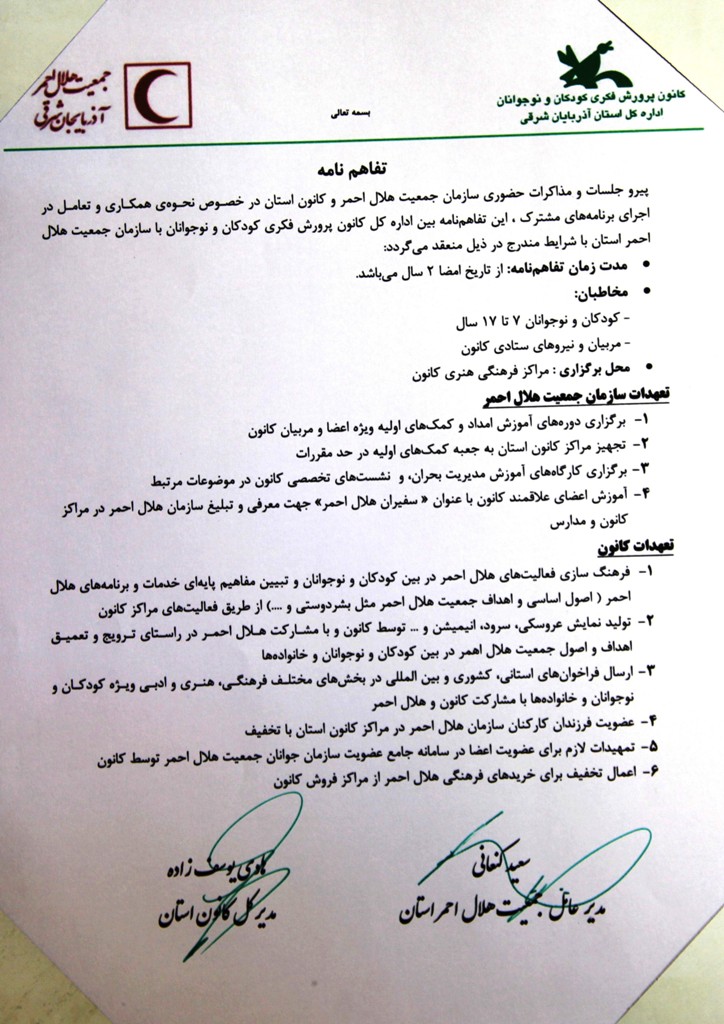 کانون پرورش فکری کودکان و نوجوانان
اداره کل استان آذربایجان شرقی
جمعیت هلال احمر
آذربایجان شرقی
بسمه تعالی
تفاهم نامه
پیرو جلسات و مذاکرات حضوری سازمان جمعیت هلال احمر و کانون استان در خصوص نحوه‌ی همکاری و تعامل در
اجرای برنامه‌های مشترک ، این تفاهم‌نامه بین اداره کل کانون پرورش فکری کودکان و نوجوانان با سازمان جمعیت هلال
احمر استان با شرایط مندرج در ذیل منعقد می‌گردد:
• مدت زمان تفاهم‌نامه: از تاریخ امضا ۲ سال می‌باشد.
• مخاطبان:
- کودکان و نوجوانان ۷ تا ۱۷ سال
- مربیان و نیروهای ستادی کانون
• محل برگزاری : مراکز فرهنگی هنری کانون
تعهدات سازمان جمعیت هلال احمر
۱- برگزاری دوره‌های آموزش امداد و کمک‌های اولیه ویژه اعضا و مربیان کانون
۲- تجهیز مراکز کانون استان به جعبه کمک‌های اولیه در حد مقررات
۳- برگزاری کارگاه‌های آموزش مدیریت بحران، و نشست‌های تخصصی کانون در موضوعات مرتبط
۴- آموزش اعضای علاقمند کانون با عنوان « سفیران هلال احمر» جهت معرفی و تبلیغ سازمان هلال احمر در مراکز
کانون و مدارس
تعهدات کانون
۱- فرهنگ سازی فعالیت‌های هلال احمر در بین کودکان و نوجوانان و تبیین مفاهیم پایه‌ای خدمات و برنامه‌های هلال
احمر ( اصول اساسی و اهداف جمعیت هلال احمر مثل بشردوستی و ....) از طریق فعالیت‌های مراکز کانون
۲- تولید نمایش عروسکی، سرود، انیمیشن و ... توسط کانون و با مشارکت هلال احمر در راستای ترویج و تعمیق
اهداف و اصول جمعیت هلال اهمر در بین کودکان و نوجوانان و خانواده‌ها
۳- ارسال فراخوان‌های استانی، کشوری و بین المللی در بخش‌های مختلف فرهنگی، هنری و ادبی ویژه کودکان و
نوجوانان و خانواده‌ها با مشارکت کانون و هلال احمر
۴- عضویت فرزندان کارکنان سازمان هلال احمر در مراکز کانون استان با تخفیف
۵- تمهیدات لازم برای عضویت اعضا در سامانه جامع عضویت سازمان جوانان جمعیت هلال احمر توسط کانون
۶- اعمال تخفیف برای خریدهای فرهنگی هلال احمر از مراکز فروش کانون
سعید کنعانی
مدیر عامل جمعیت هلال احمر استان
یوسف زاده
مدیر کل کانون استان